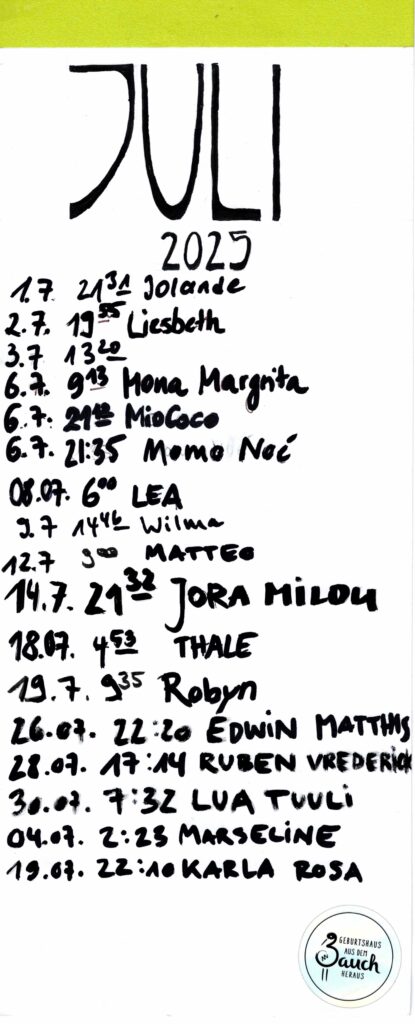 JULI
2025
1.7. 21³¹ Jolande
2.7. 19⁵⁵ Liesbeth
3.7 13²⁰
6.7. 9¹³ Mona Margrita
6.7. 21¹² MioCoco
6.7. 21:35 Momo Noé
08.07. 6⁰⁰ LEA
9.7 14⁴⁶ Wilma
12.7 9⁰⁰ MATTEO
14.7. 21³² JORA MILOU
18.07. 4⁵³ THALE
19.7. 9³⁵ Robyn
26.07. 22:20 EDWIN MATTHIS
28.07. 17:14 RUBEN VREDERICK
30.07. 7:32 LUA TUULI
04.07. 2:23 MARSELINE
19.07. 22:10 KARLA ROSA
GEBURTSHAUS
AUS DEM
Bauch
HERAUS